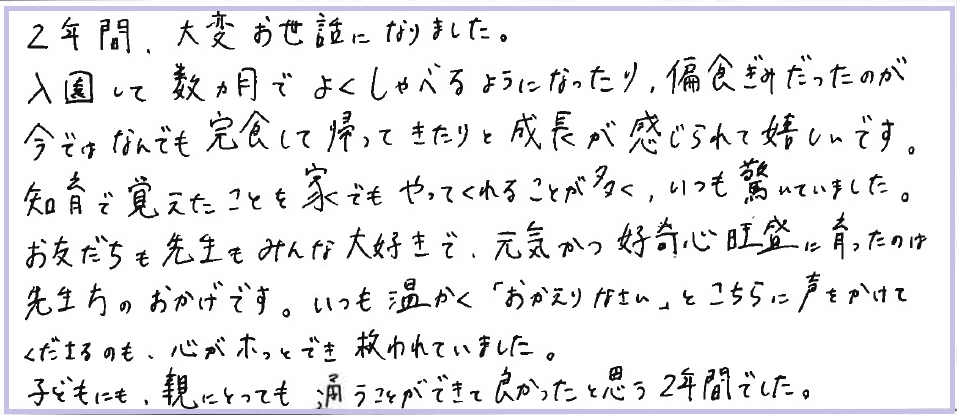 2年間、大変お世話になりました。
入園して数ヵ月でよくしゃべるようになったり、偏食ぎみだったのが
今ではなんでも完食して帰ってきたりと成長が感じられて嬉しいです。
知育で覚えたことを家でもやってくれることが多く、いつも驚いていました。
お友だちも先生もみんな大好きで、元気かつ好奇心旺盛に育ったのは
先生方のおかげです。いつも温かく「おかえりなさい」とこちらに声をかけて
くださるのも、心がホッとでき救われていました。
子どもにも、親にとっても通うことができて良かったと思う2年間でした。